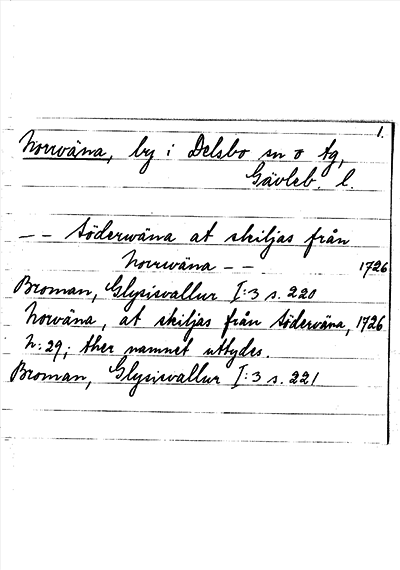 1.
Norrväna, by i Delsbo sn o tg,
Gävleb. l.
-- Söderwäna at skiljas från
Norrwäna -- 1726
Broman, Glysisvallur I:3 s. 220
Norwäna, at skiljas från Söderväna, 1726
N:29; ther namnet uttydes.
Broman, Glysisvallur I:3 s. 221